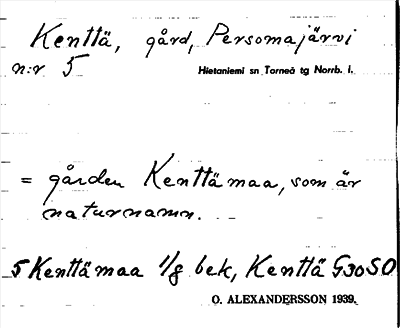 Kenttä, gård, Persomajärvi
n:r 5 Hietaniemi sn Torneå tg Norrb. l.
= gården Kenttämaa, som är
naturnamn.
5 Kenttämaa 1/8 bek, Kenttä G30SO
O. ALEXANDERSSON 1939.